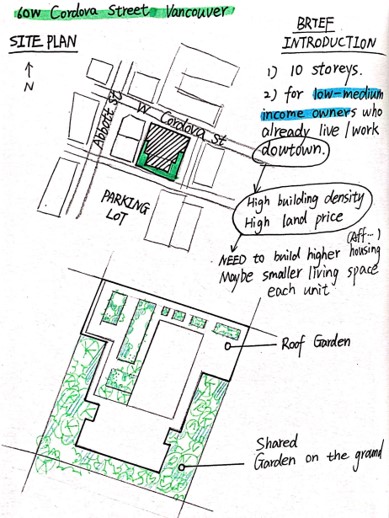 60W Cordova Street Vancouver
SITE PLAN
N
Abbott St
W Cordova St
PARKING
LOT
BRIEF
INTRODUCTION
1) 10 storeys.
2) for low-medium
income owners who
already live/work
dowtown.
High building density
High land price
(Aff...)
NEED to build higher housing
Maybe smaller living space
each unit
Roof Garden
Shared
Garden on the ground